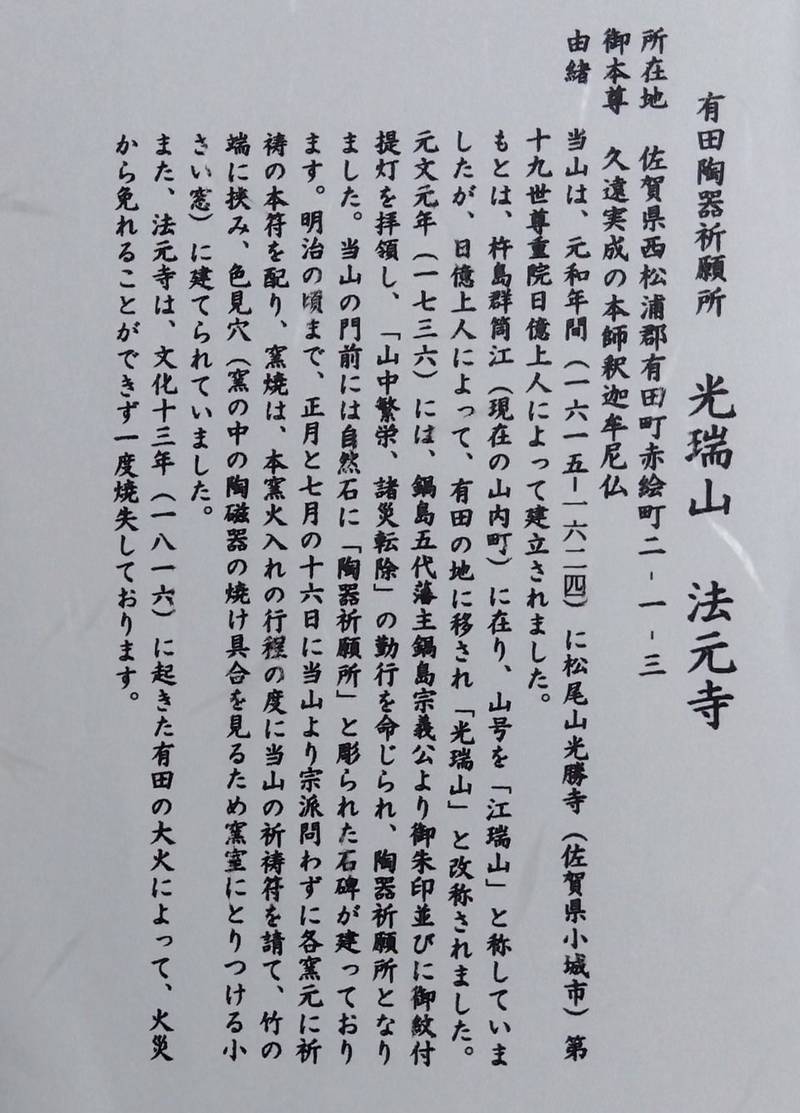 有田陶器祈願所　光瑞山　法元寺
所在地　佐賀県西松浦郡有田町赤絵町二-一-三
御本尊　久遠実成の本師釈迦牟尼仏
由緒
当山は、元和年間（一六一五-一六二四）に松尾山光勝寺（佐賀県小城市）第
十九世尊重院日億上人によって建立されました。
もとは、杵島群筒江（現在の山内町）に在り、山号を「江瑞山」と称していま
したが、日億上人によって、有田の地に移され「光瑞山」と改称されました。
元文元年（一七三六）には、鍋島五代藩主鍋島宗義公より御朱印並びに御紋付
提灯を拝領し、「山中繁栄、諸災転除」の勤行を命じられ、陶器祈願所となり
ました。当山の門前には自然石に「陶器祈願所」と彫られた石碑が建っており
ます。明治の頃まで、正月と七月の十六日に当山より宗派問わずに各窯元に祈
祷の本符を配り、窯焼は、本窯火入れの行程の度に当山の祈祷符を請て、竹の
端に挟み、色見穴（窯の中の陶磁器の焼け具合を見るため窯室にとりつける小
さい窓）に建てられていました。
また、法元寺は、文化十三年（一八一六）に起きた有田の大火によって、火災
から免れることができず一度焼失しております。